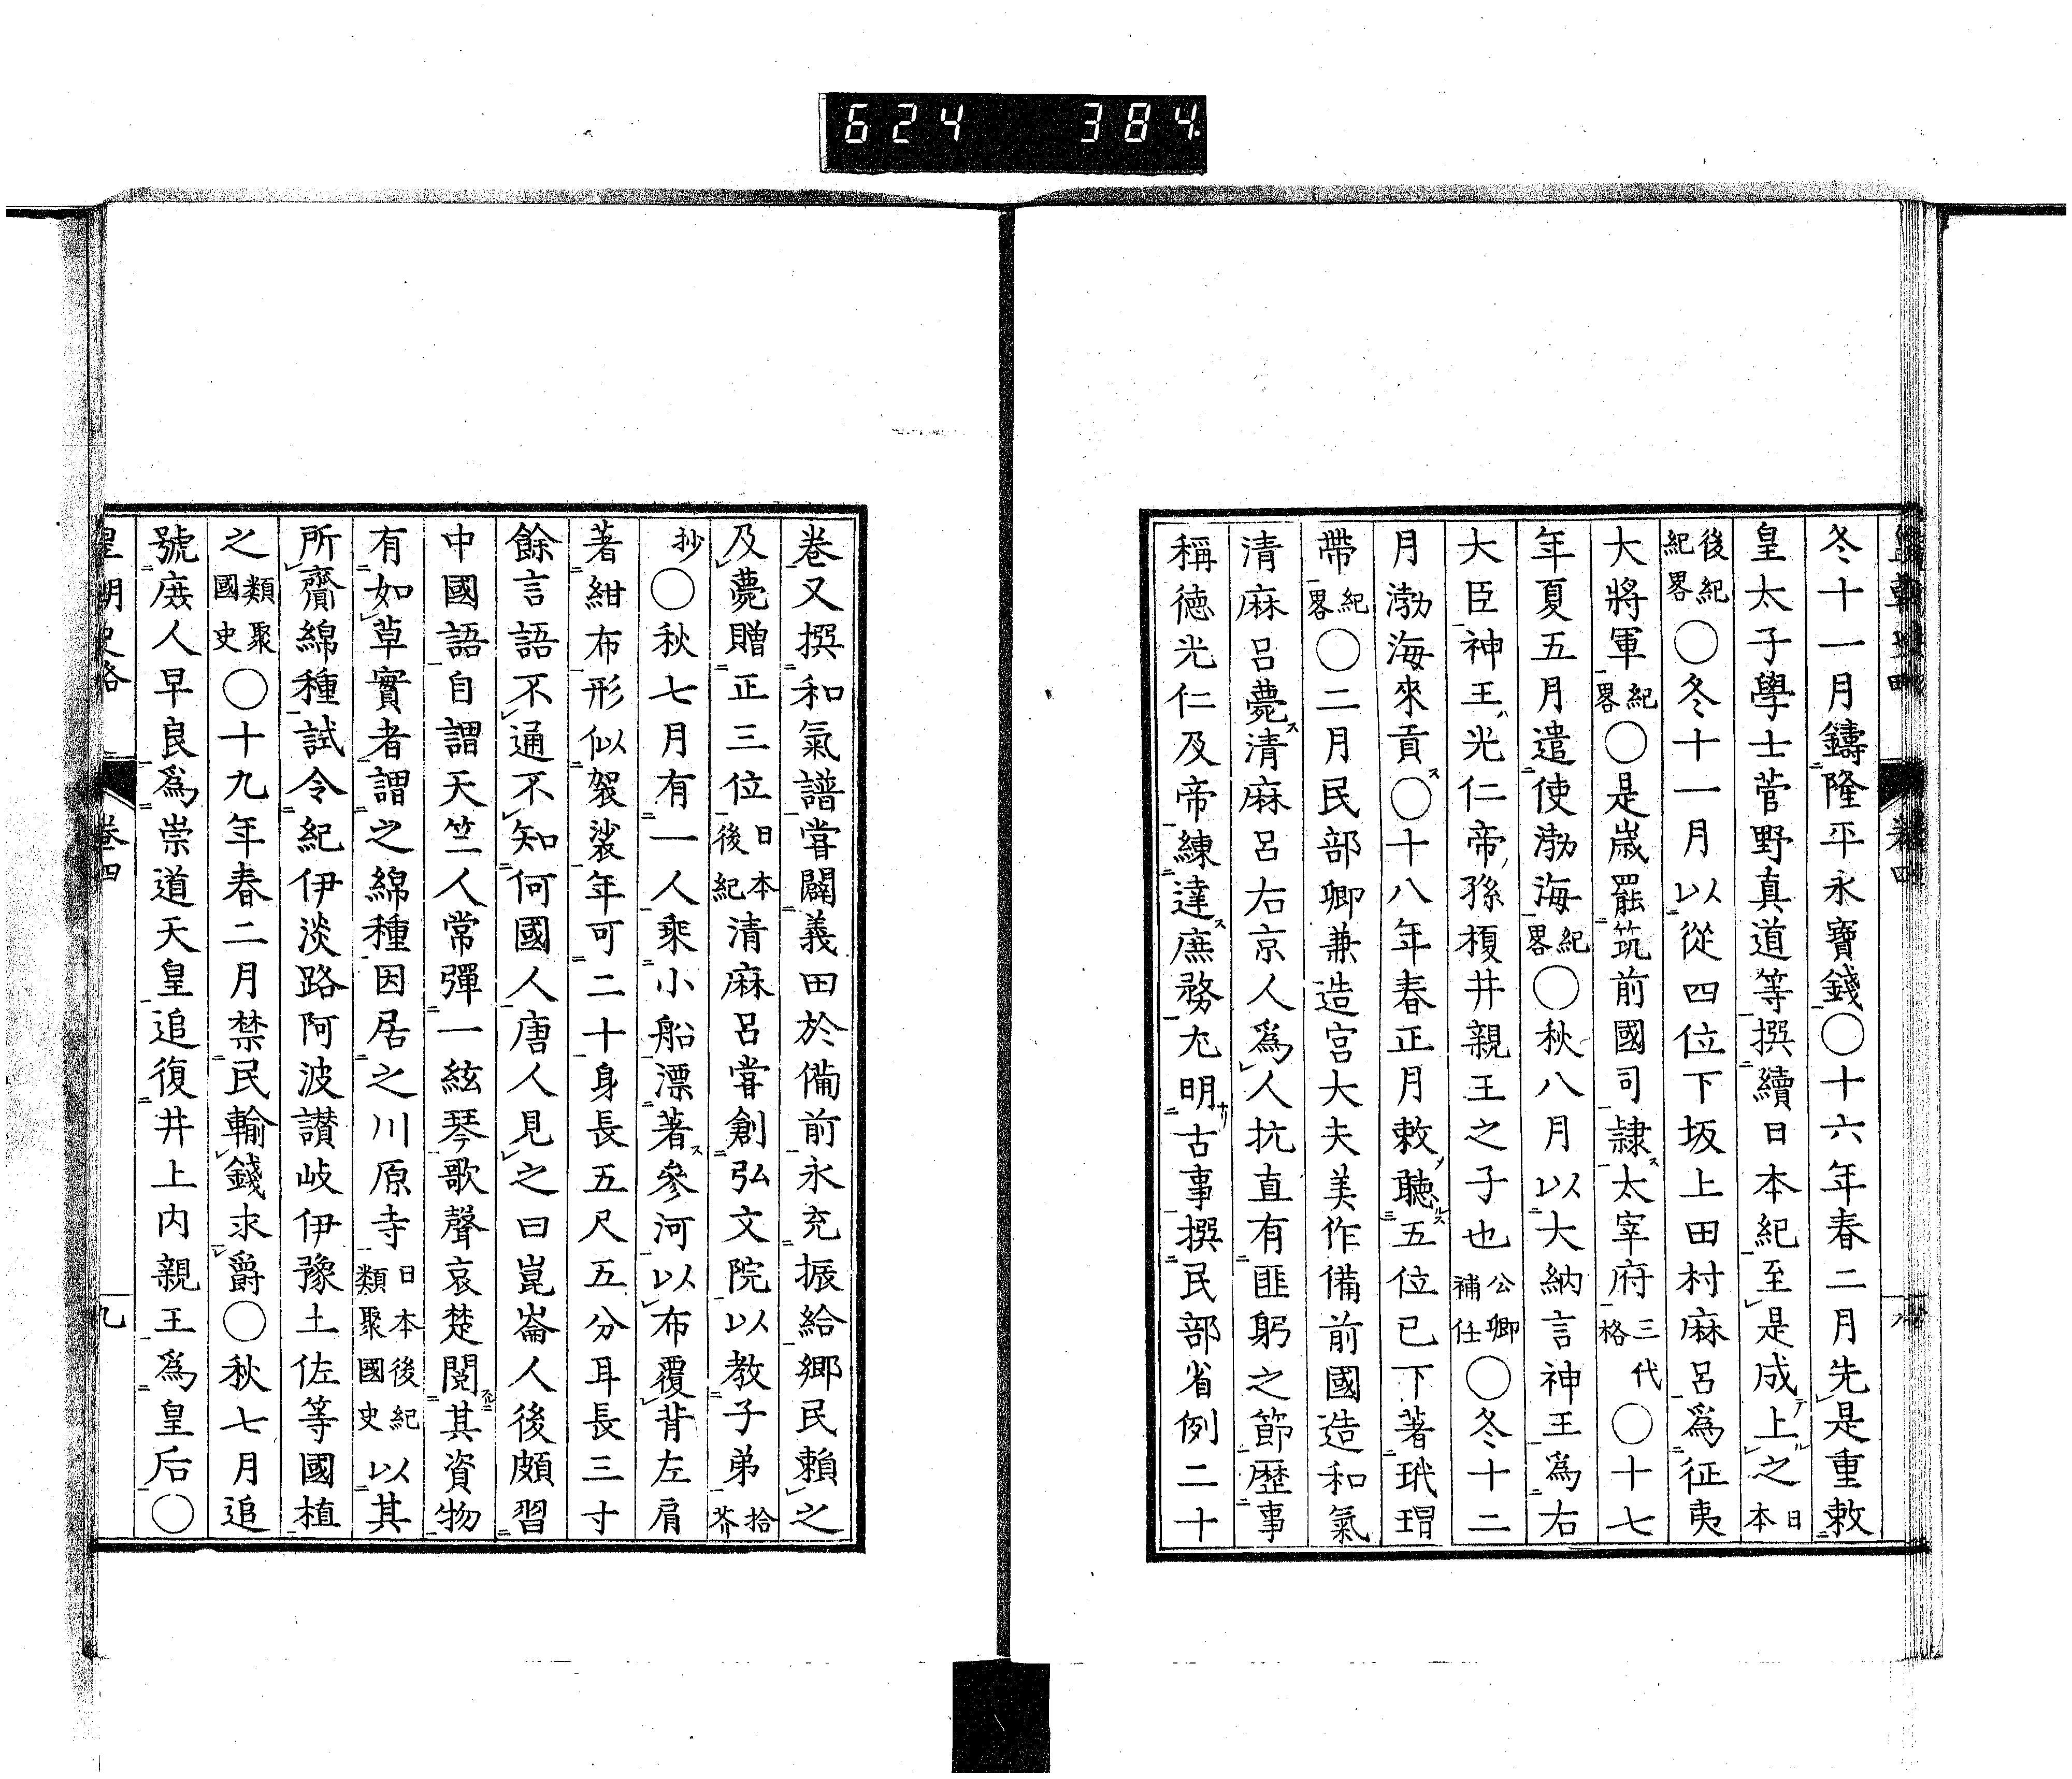 624 384
冬十一月鑄隆平永寶錢〇十六年春二月先是重敕
皇太子學士菅野真道等撰續日本紀至是成上之日本
後紀紀畧〇冬十一月以從四位下坂上田村麻呂爲征夷
大將軍紀畧〇是歳罷筑前國司隷太宰府三代格〇十七
年夏五月遣使渤海紀畧〇秋八月以大納言神王爲右
大臣神王光仁帝孫榎井親王之子也公卿補任〇冬十二
月渤海來貢〇十八年春正月敕聽五位已下著玳瑁
帶紀畧〇二月民部卿兼造宮大夫美作備前國造和氣
清麻呂薨清麻呂右京人爲人抗直有匪躬之節歴事
稱徳光仁及帝練達庶務尤明古事撰民部省例二十
卷又撰和氣譜嘗闢義田於備前永充振給鄉民賴之
及薨贈正三位日本後紀清麻呂嘗創弘文院以教子弟拾芥
抄〇秋七月有一人乘小船漂著參河以布覆背左肩
著紺布形似袈裟年可二十身長五尺五分耳長三寸
餘言語不通不知何國人唐人見之曰崑崙人後頗習
中國語自謂天竺人常彈一絃琴歌聲哀楚閲其資物
有如草實者謂之綿種因居之川原寺日本後紀類聚國史以其
所齎綿種試令紀伊淡路阿波讃岐伊豫土佐等國植
之類聚國史〇十九年春二月禁民輸錢求爵〇秋七月追
號廢人早良爲崇道天皇追復井上内親王爲皇后〇
皇朝史略 卷四 九